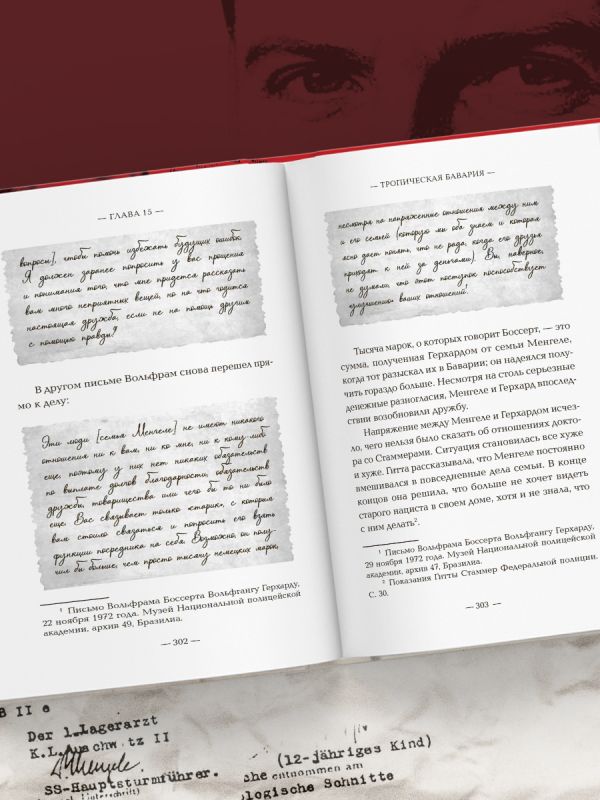 — ГЛАВА 15 —
вопросы], чтобы помочь избежать будущих ошибок.
Я должен заранее попросить у вас прощения
и понимания того, что мне придется рассказать
вам много неприятных вещей, но на что годится
настоящая дружба, если не на помощь друзьям
с помощью правды?
В другом письме Вольфрам снова перешел пря-
мо к делу:
Эти люди [семья Менгеле] не имеют никакого
отношения ни к вам, ни ко мне, ни к кому-либо
еще, поэтому у них нет никаких обязательств
по выплате долгов благодарности, обязательств
дружбы, товарищества или чего бы то ни было
еще. Вас связывает только «старик», с которым
вам стоило связаться и попросить его взять
функции посредника на себя. Возможно, он полу-
чил бы больше, чем просто тысячу немецких марок.
¹ Письмо Вольфрама Боссерта Вольфгангу Герхарду,
22 ноября 1972 года. Музей Национальной полицейской
академии, архив 49, Бразилиа.
— 302 —
— ТРОПИЧЕСКАЯ БАВАРИЯ —
несмотря на напряженные отношения между ним
и его семьей (которую мы оба знаем и которая
ясно дает понять, что не рада, когда его друзья
приходят к ней за деньгами). Вы, наверное,
не думали, что этот поступок поспособствует
«улучшению» ваших отношений!
Тысяча марок, о которых говорит Боссерт, — это
сумма, полученная Герхардом от семьи Менгеле,
когда тот разыскал их в Баварии; он надеялся полу-
чить гораздо больше. Несмотря на столь серьезные
денежные разногласия, Менгеле и Герхард впослед-
ствии возобновили дружбу.
Напряжение между Менгеле и Герхардом исчез-
ло, чего нельзя было сказать об отношениях докто-
ра со Стаммерами. Ситуация становилась все хуже
и хуже. Гитта рассказывала, что Менгеле постоянно
вмешивался в повседневные дела семьи. В конце
концов она решила, что больше не хочет видеть
старого нациста в своем доме, хотя и не знала, что
с ним делать².
¹ Письмо Вольфрама Боссерта Вольфгангу Герхарду,
29 ноября 1972 года. Музей Национальной полицейской
академии, архив 47, Бразилиа.
² Показания Гитты Стаммер Федеральной полиции.
С. 30.
— 303 —
B II e
Der 1.Lagerarzt
K.L.Auschwitz II
SS-Hauptsturmführer.
(12-jähriges Kind)
entnommen am
ologische Schnitte